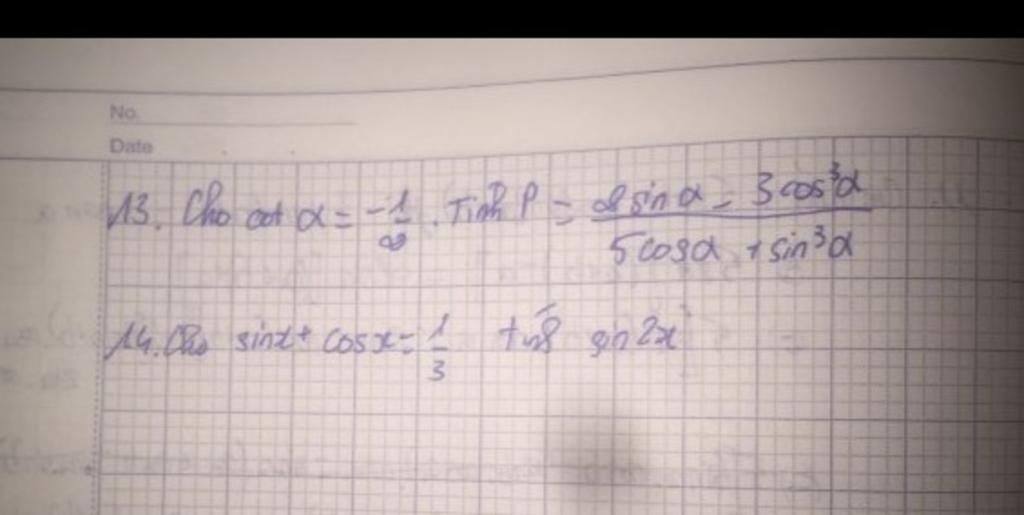 No.
Date
13. Cho cot α = -1/2. Tính P = (2 sin α - 3 cos³α)/(5 cos α + sin³α)
14. Cho sin x + cos x = 1/3 tính sin 2x